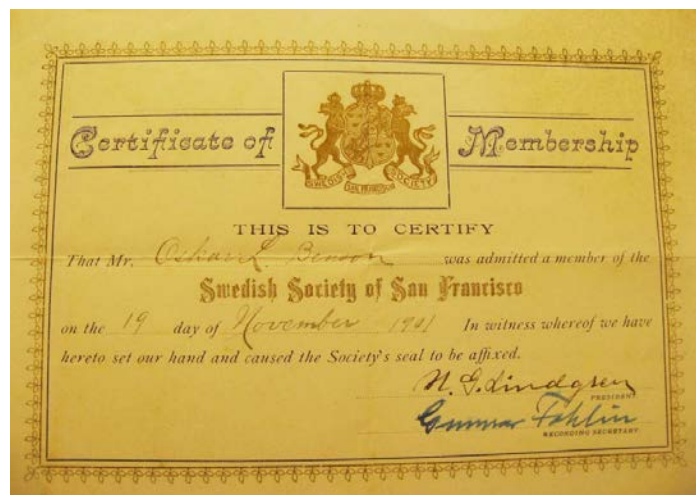 Certificate of Membership
SWEDISH SAN FRANCISCO SOCIETY
THIS IS TO CERTIFY
That Mr. Oskar L. Benson was admitted a member of the
Swedish Society of San Francisco
on the 19 day of November 1901 In witness whereof we have
hereto set our hand and caused the Society's seal to be affixed.
N. G. Lindgren
PRESIDENT
Gunnar
RECORDING SECRETARY